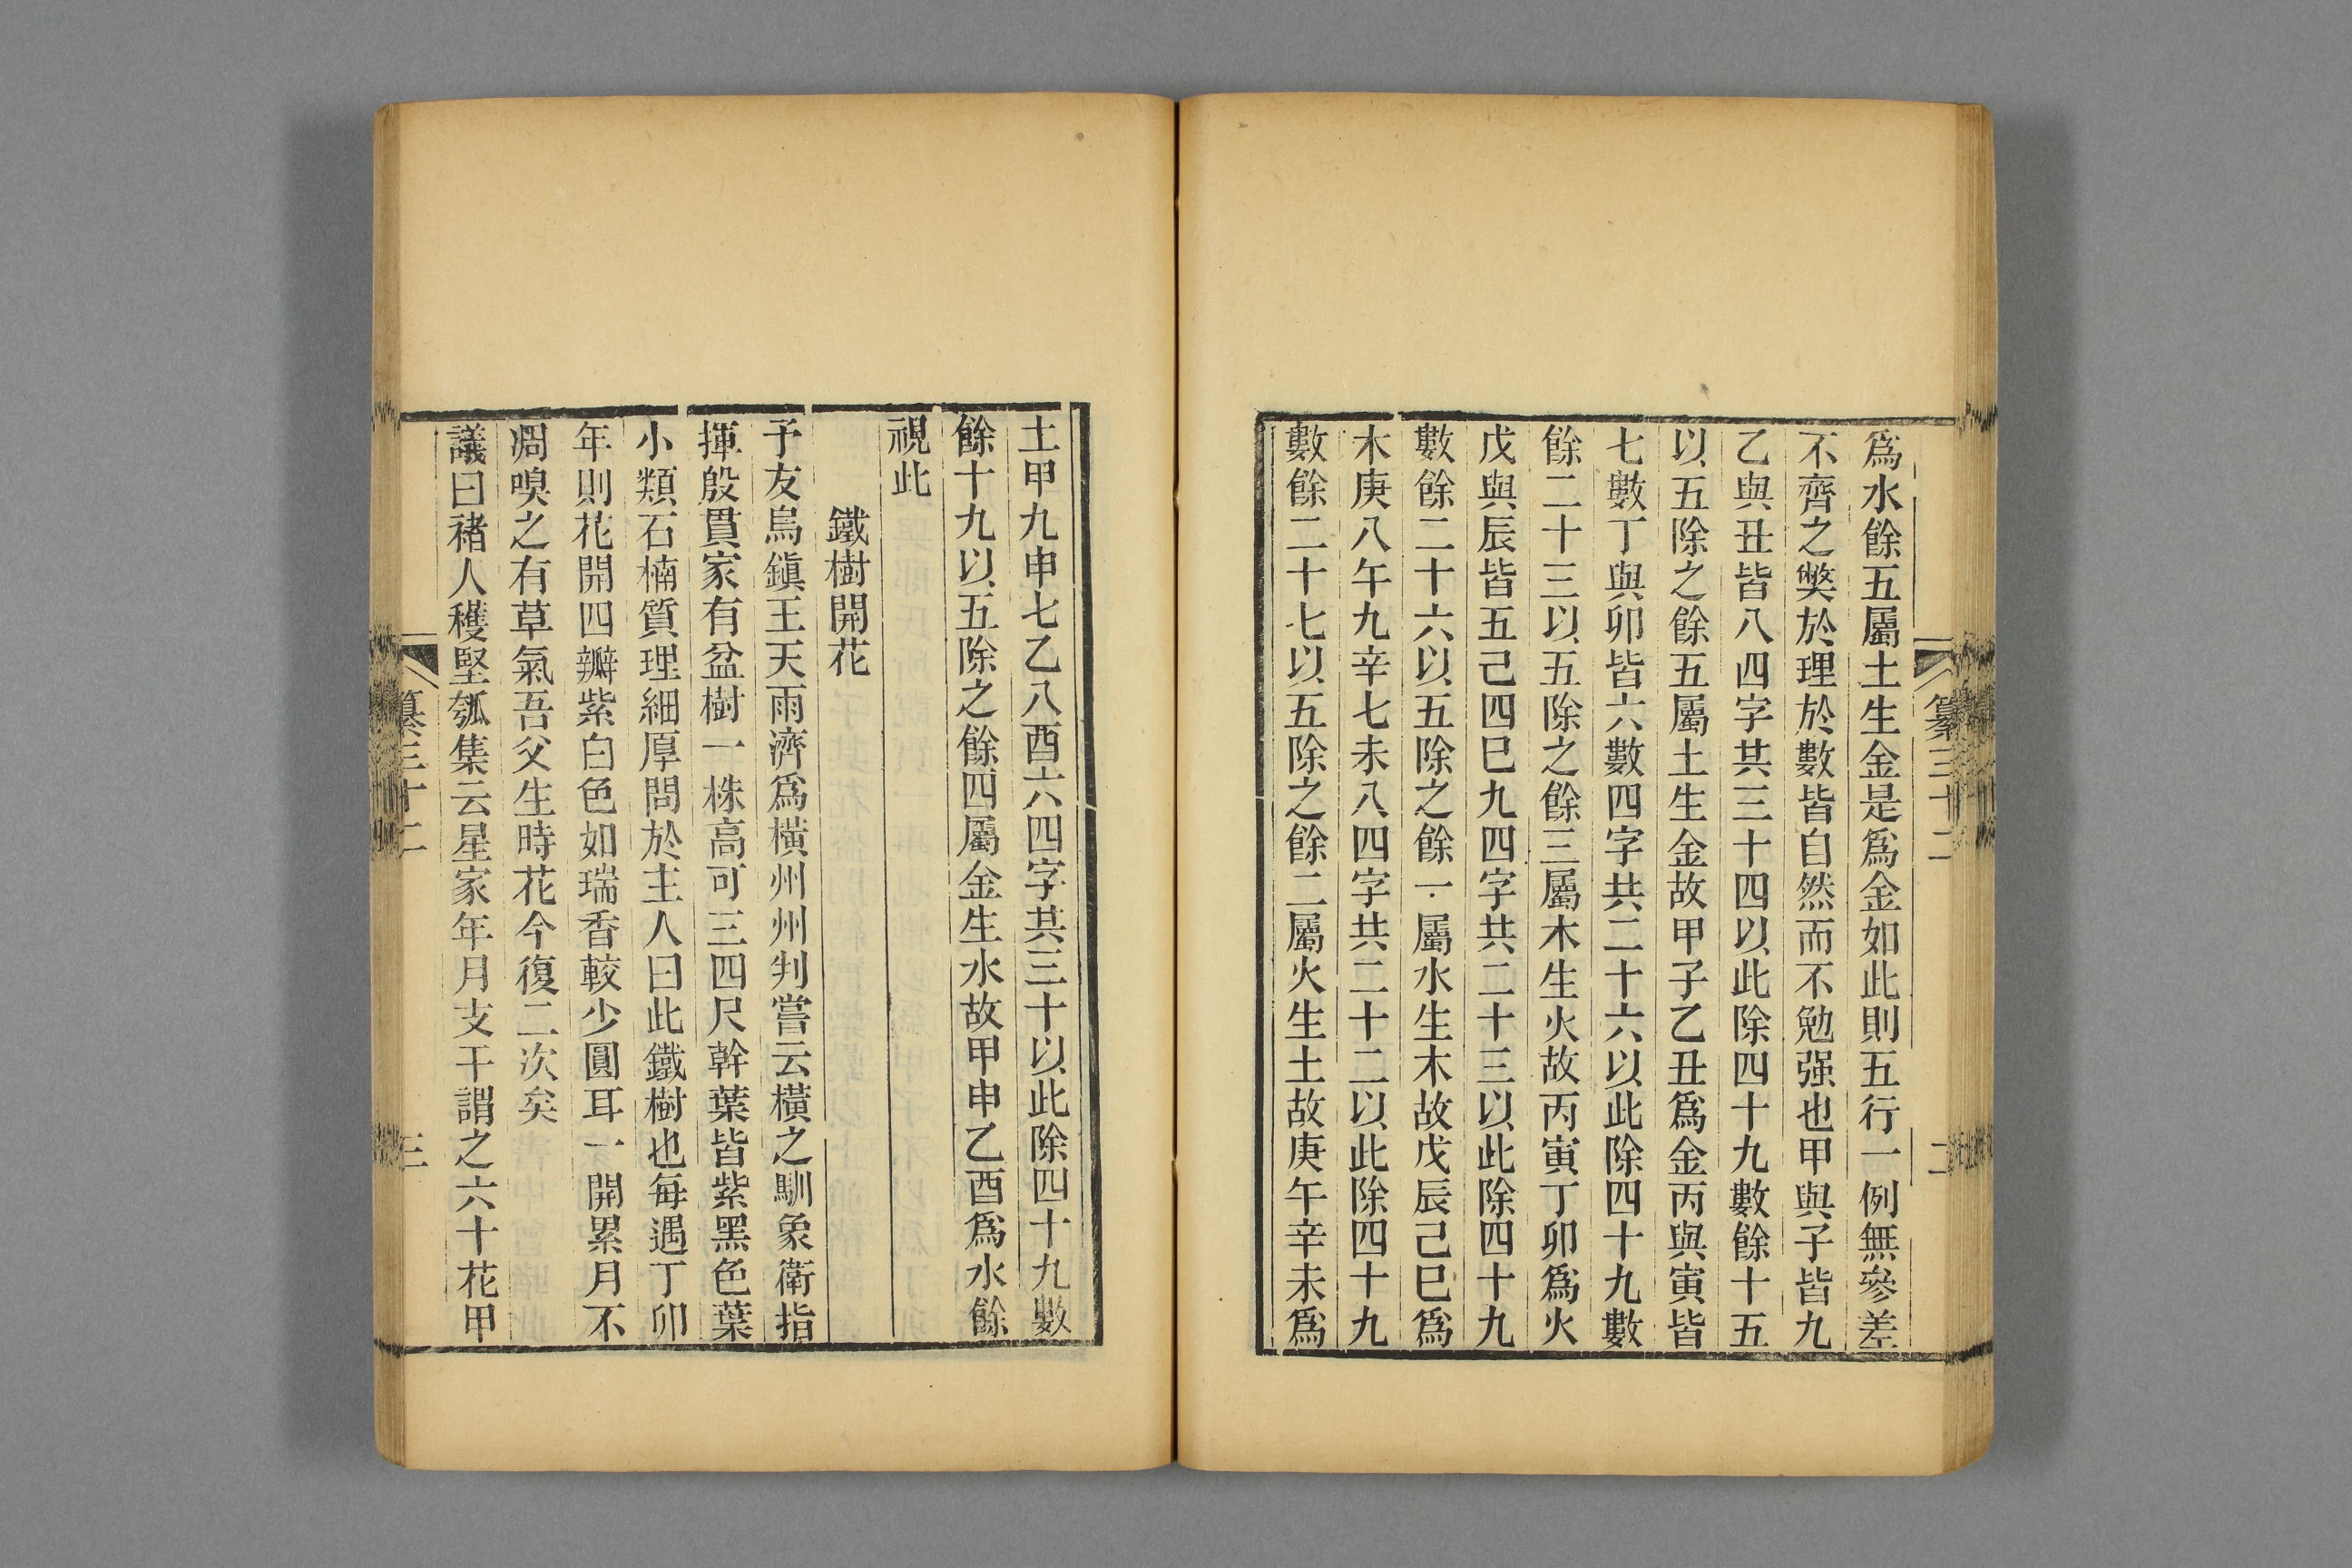 纂三十二
二
爲水餘五屬土生金是爲金如此則五行一例無參差
不齊之獘於理於數皆自然而不勉强也甲與子皆九
乙與丑皆八四字共三十四以此除四十九數餘十五
以五除之餘五屬土生金故甲子乙丑爲金丙與寅皆
七數丁與卯皆六數四字共二十六以此除四十九數
餘二十三以五除之餘三屬木生火故丙寅丁卯爲火
戊與辰皆五己四巳九四字共二十三以此除四十九
數餘二十六以五除之餘一屬水生木故戊辰己巳爲
木庚八午九辛七未八四字共二十二以此除四十九
數餘二十七以五除之餘二屬火生土故庚午辛未爲
土甲九申七乙八酉六四字共三十以此除四十九數
餘十九以五除之餘四屬金生水故甲申乙酉爲水餘
視此
鐵樹開花
予友烏鎭王天雨濟爲橫州州判嘗云橫之馴象衛指
揮殷貫家有盆樹一株高可三四尺幹葉皆紫黑色葉
小類石楠質理細厚問於主人曰此鐵樹也每遇丁卯
年則花開四瓣紫白色如瑞香較少圓耳一開累月不
凋嗅之有草氣吾父生時花今復二次矣
議曰褚人穫堅瓠集云星家年月支干謂之六十花甲
纂三十二
三